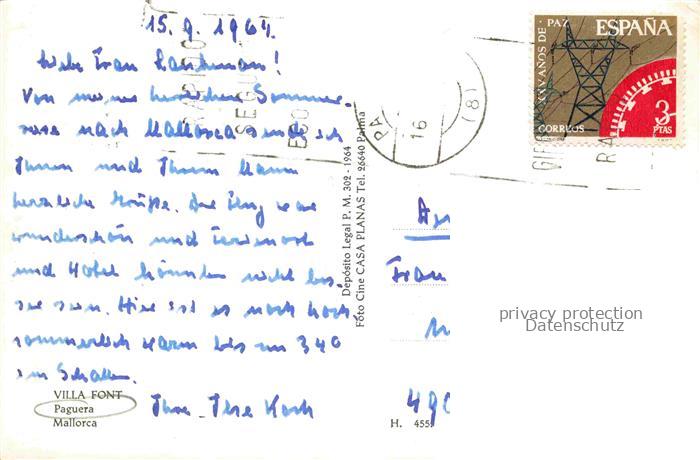 15.9.1964.
Liebe Frau Lachmann!
Von meiner herrlichen Sommer-
reise nach Mallorca sende ich
Ihnen und Ihrem Mann
herzliche Grüße. Der Flug war
wunderschön und Ferienort
und Hotel könnten nicht bes-
ser sein. Hier ist es noch hoch-
sommerlich warm bis zu 34°
im Schatten.
Ihre Ilse Koch
VILLA FONT
Paguera
Mallorca
Depósito Legal P. M. 302 - 1964
Foto Cine CASA PLANAS Tel. 26640 Palma
H. 455
Frau
490
XXV AÑOS DE PAZ
ESPAÑA
CORREOS
3
PTAS
16
(8)
privacy protection
Datenschutz